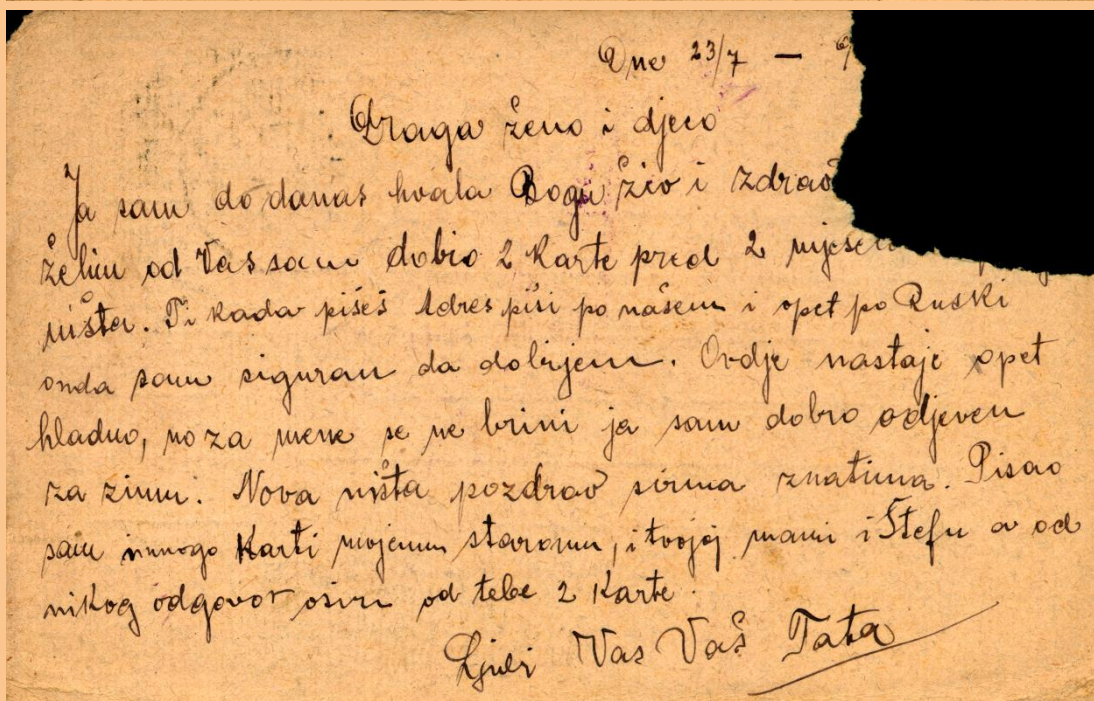 Dne 23/7 —
Draga ženo i djeco
Ja sam do danas hvala Bogu živ i zdrav
želim od Vas sam dobio 2 Karte pred 2 mjesec
ništa. Ti kada pišeš Adres piši po našem i opet po Ruski
onda sam siguran da dobijem. Ovdje nastaje opet
hladno, no za mene se ne brini ja sam dobro odjeven
za zimu. Nova ništa pozdrav svima znatima. Pisao
sam mnogo Karti mojemu staromu, i tvojoj mami i Štefu a od
nikog odgovor osim od tebe 2 Karte.
Ljubi Vas Vaš Tata